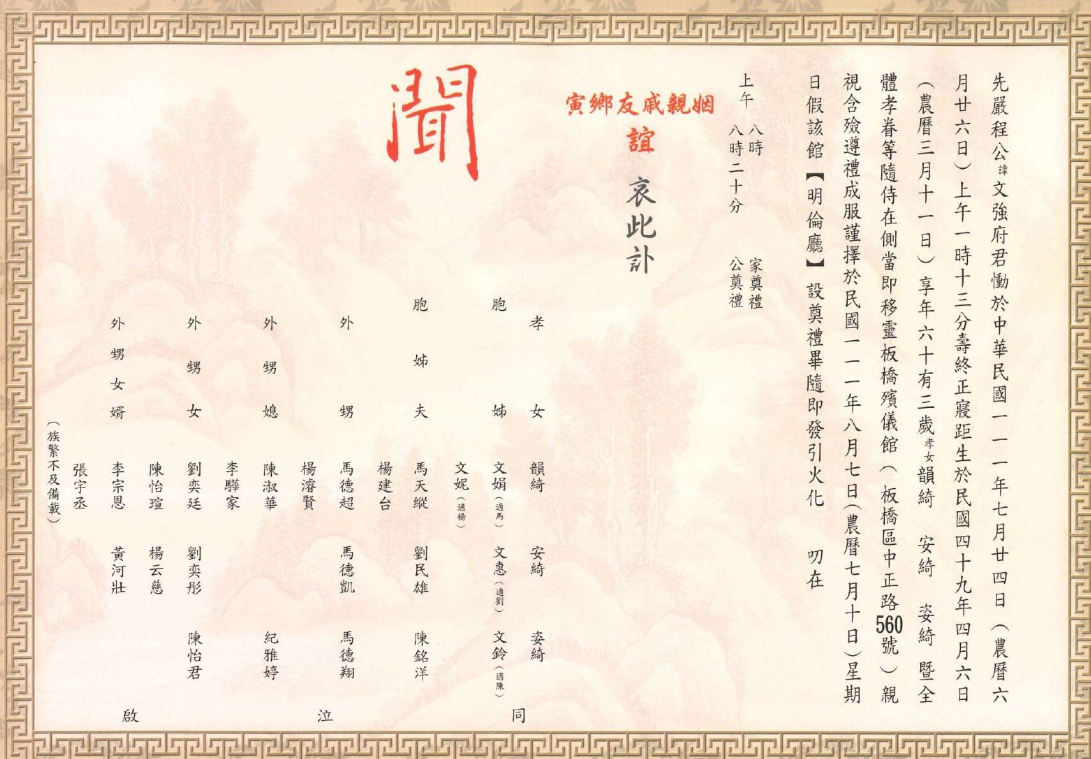 先嚴程公諱文強府君慟於中華民國一一一年七月廿四日（農曆六
月廿六日）上午一時十三分壽終正寢距生於民國四十九年四月六日
（農曆三月十一日）享年六十有三歲孝女韻綺　安綺　姿綺暨全
體孝眷等隨侍在側當即移靈板橋殯儀館（板橋區中正路560號）親
視含殮遵禮成服謹擇於民國一一一年八月七日（農曆七月十日）星期
日假該館【明倫廳】設奠禮畢隨即發引火化　叨在
上午　八時　家奠禮
八時二十分　公奠禮
寅鄉友戚親姻
誼
哀此訃
聞
孝女　韻綺　安綺　姿綺
胞姊　文娟（適馬）　文惠（適劉）　文鈴（適陳）
文妮（適楊）
胞姊夫　馬天縱　劉民雄　陳銘洋
楊建台
外甥　馬德超　馬德凱　馬德翔
楊濬賢
外甥媳　陳淑華　紀雅婷
李驊家
外甥女　劉奕廷　劉奕彤　陳怡君
陳怡瑄　楊云慈
外甥女婿　李宗恩　黃河壯
張宇丞
（族繁不及備載）
同　泣　啟